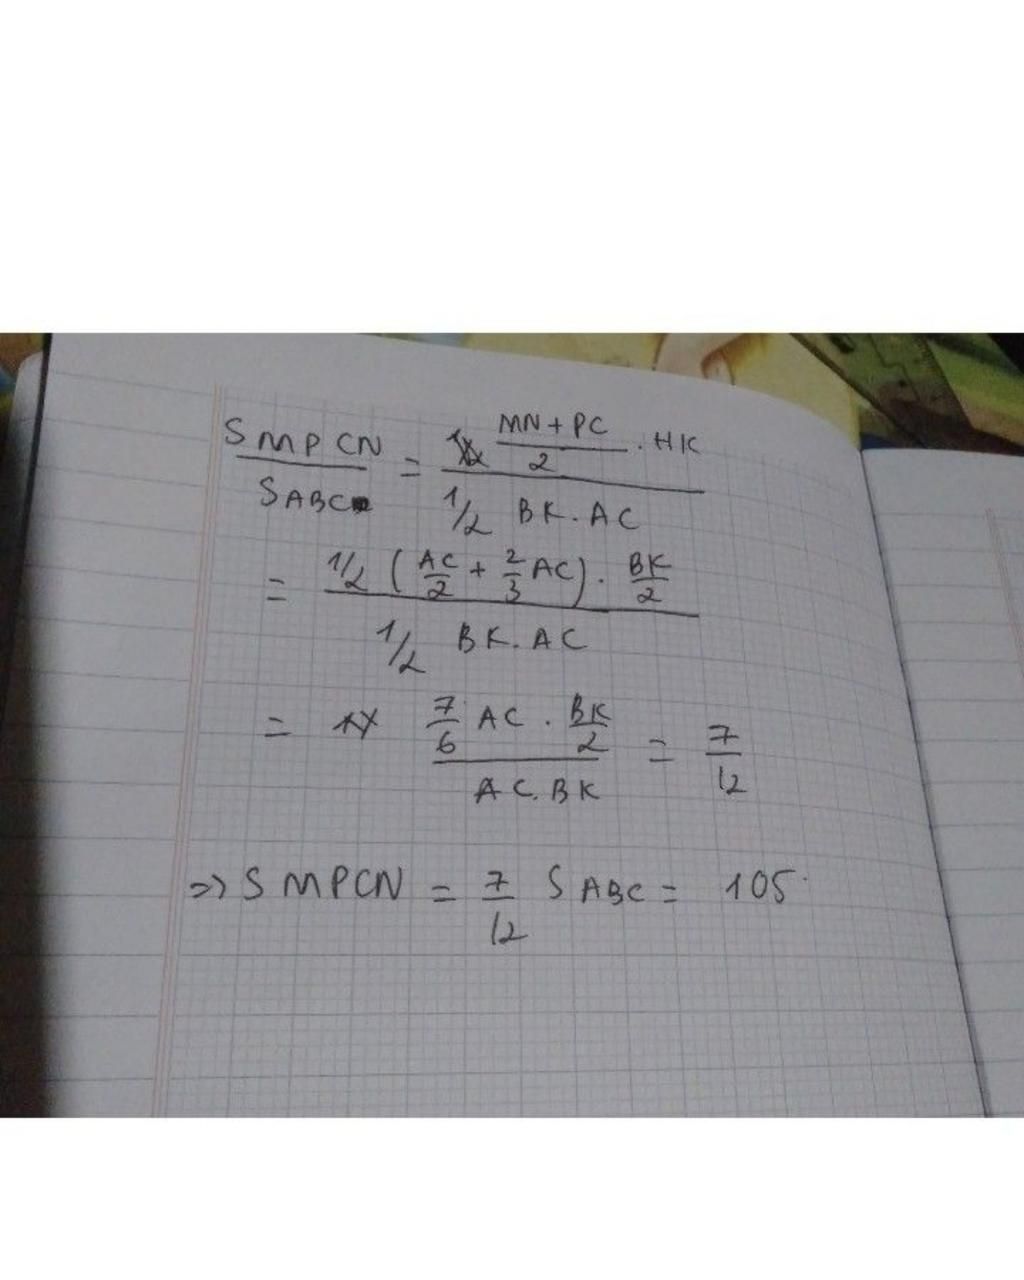 S MPCN / S ABC = (MN + PC)/2 . HK / 1/2 BK . AC
= 1/2 (AC/2 + 2/3 AC) . BK/2 / 1/2 BK . AC
= 7/6 AC . BK/2 / AC . BK = 7/12
=> S MPCN = 7/12 S ABC = 105